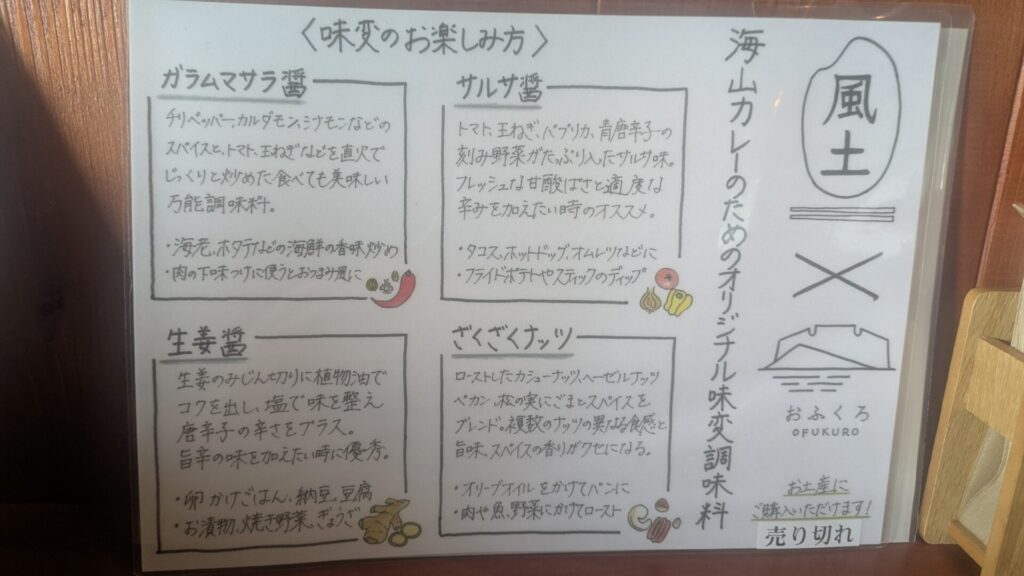 〈味変のお楽しみ方〉
ガラムマサラ醤
チリペッパー、カルダモン、シナモンなどの
スパイスと、トマト、玉ねぎなどを直火で
じっくりと炒めた食べても美味しい
万能調味料。
・海老、ホタテなどの海鮮の香味炒め
・肉の下味つけに使うとおつまみ風に
サルサ醤
トマト、玉ねぎ、パプリカ、青唐辛子の
刻み野菜がたっぷり入ったサルサ味。
フレッシュな甘酸ぱさと適度な
辛みを加えたい時のオススメ。
・タコス、ホットドッグ、オムレツなどに
・フライドポテトやスティックのディップ
生姜醤
生姜のみじん切りに植物油で
コクを出し、塩で味を整え
唐辛子の辛さをプラス。
旨辛の味を加えたい時に優秀。
・卵かけごはん、納豆、豆腐
・お漬物、焼き野菜、ぎょうざ
ざくざくナッツ
ローストしたカシューナッツ、ヘーゼルナッツ
ペカン、松の実にごまとスパイスを
ブレンド。複数のナッツの異なる食感と
旨味、スパイスの香りがクセになる。
・オリーブオイルをかけてパンに
・肉や魚、野菜にかけてロースト
海山カレーのためのオリジナル味変調味料
風土
×
おふくろ
OFUKURO
お土産に
ご購入いただけます!
売り切れ